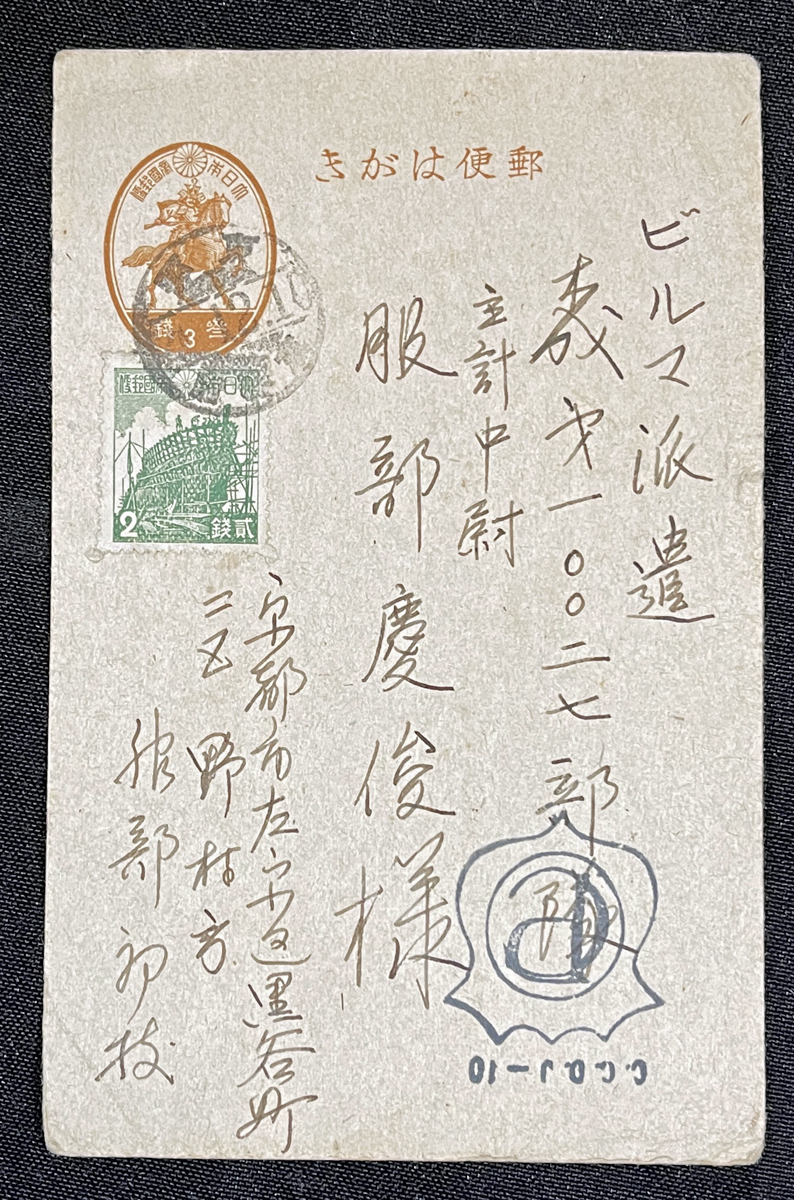 郵便はがき
大日本帝國郵便
参銭
3
大日本帝國郵便
2
貳銭
ビルマ派遣
森第一〇〇二七部隊
主計中尉
服部慶俊様
京都市左京区黒谷町
二五 野村方
服部初枝
C.C.D.J-10